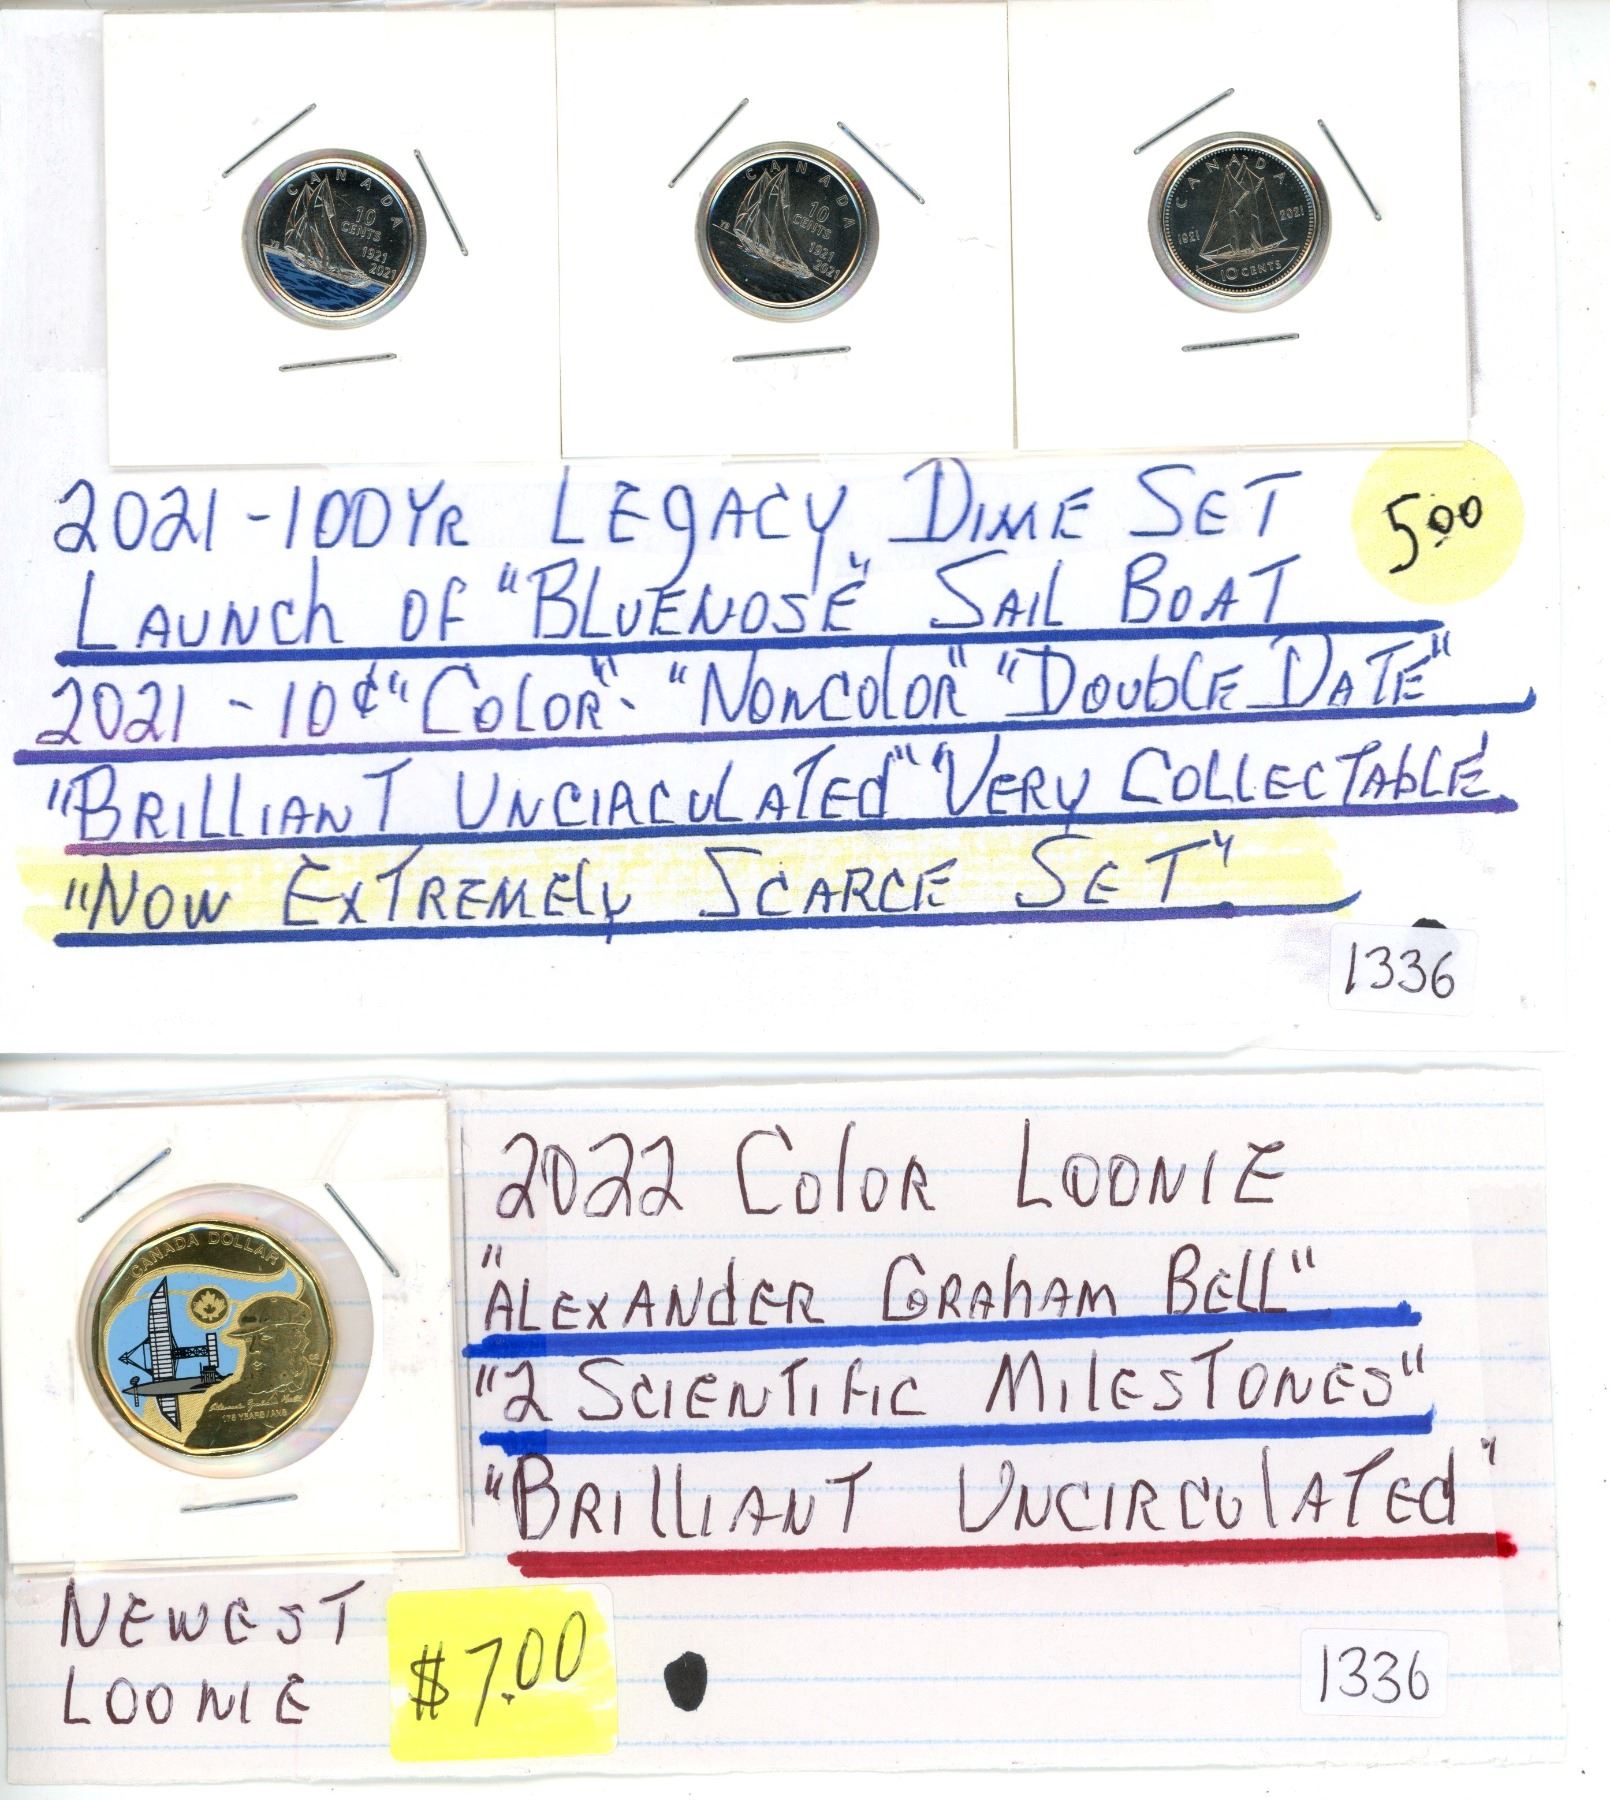 CANADA
10
CENTS
1921
2021
CANADA
10
CENTS
1921
2021
CANADA
1921
2021
10 CENTS
2021-100YR LEGACY DIME SET
5.00
LAUNCH OF "BLUENOSE" SAIL BOAT
2021 - 10¢ "COLOR"- "NONCOLOR" "DOUBLE DATE"
"BRILLIANT UNCIRCULATED" "VERY COLLECTABLE"
"NOW EXTREMELY SCARCE SET"
1336
CANADA DOLLAR
175 YEARS / ANS
2022 COLOR LOONIE
"ALEXANDER GRAHAM BELL"
"2 SCIENTIFIC MILESTONES"
"BRILLIANT UNCIRCULATED"
NEWEST
LOONIE
$7.00
1336